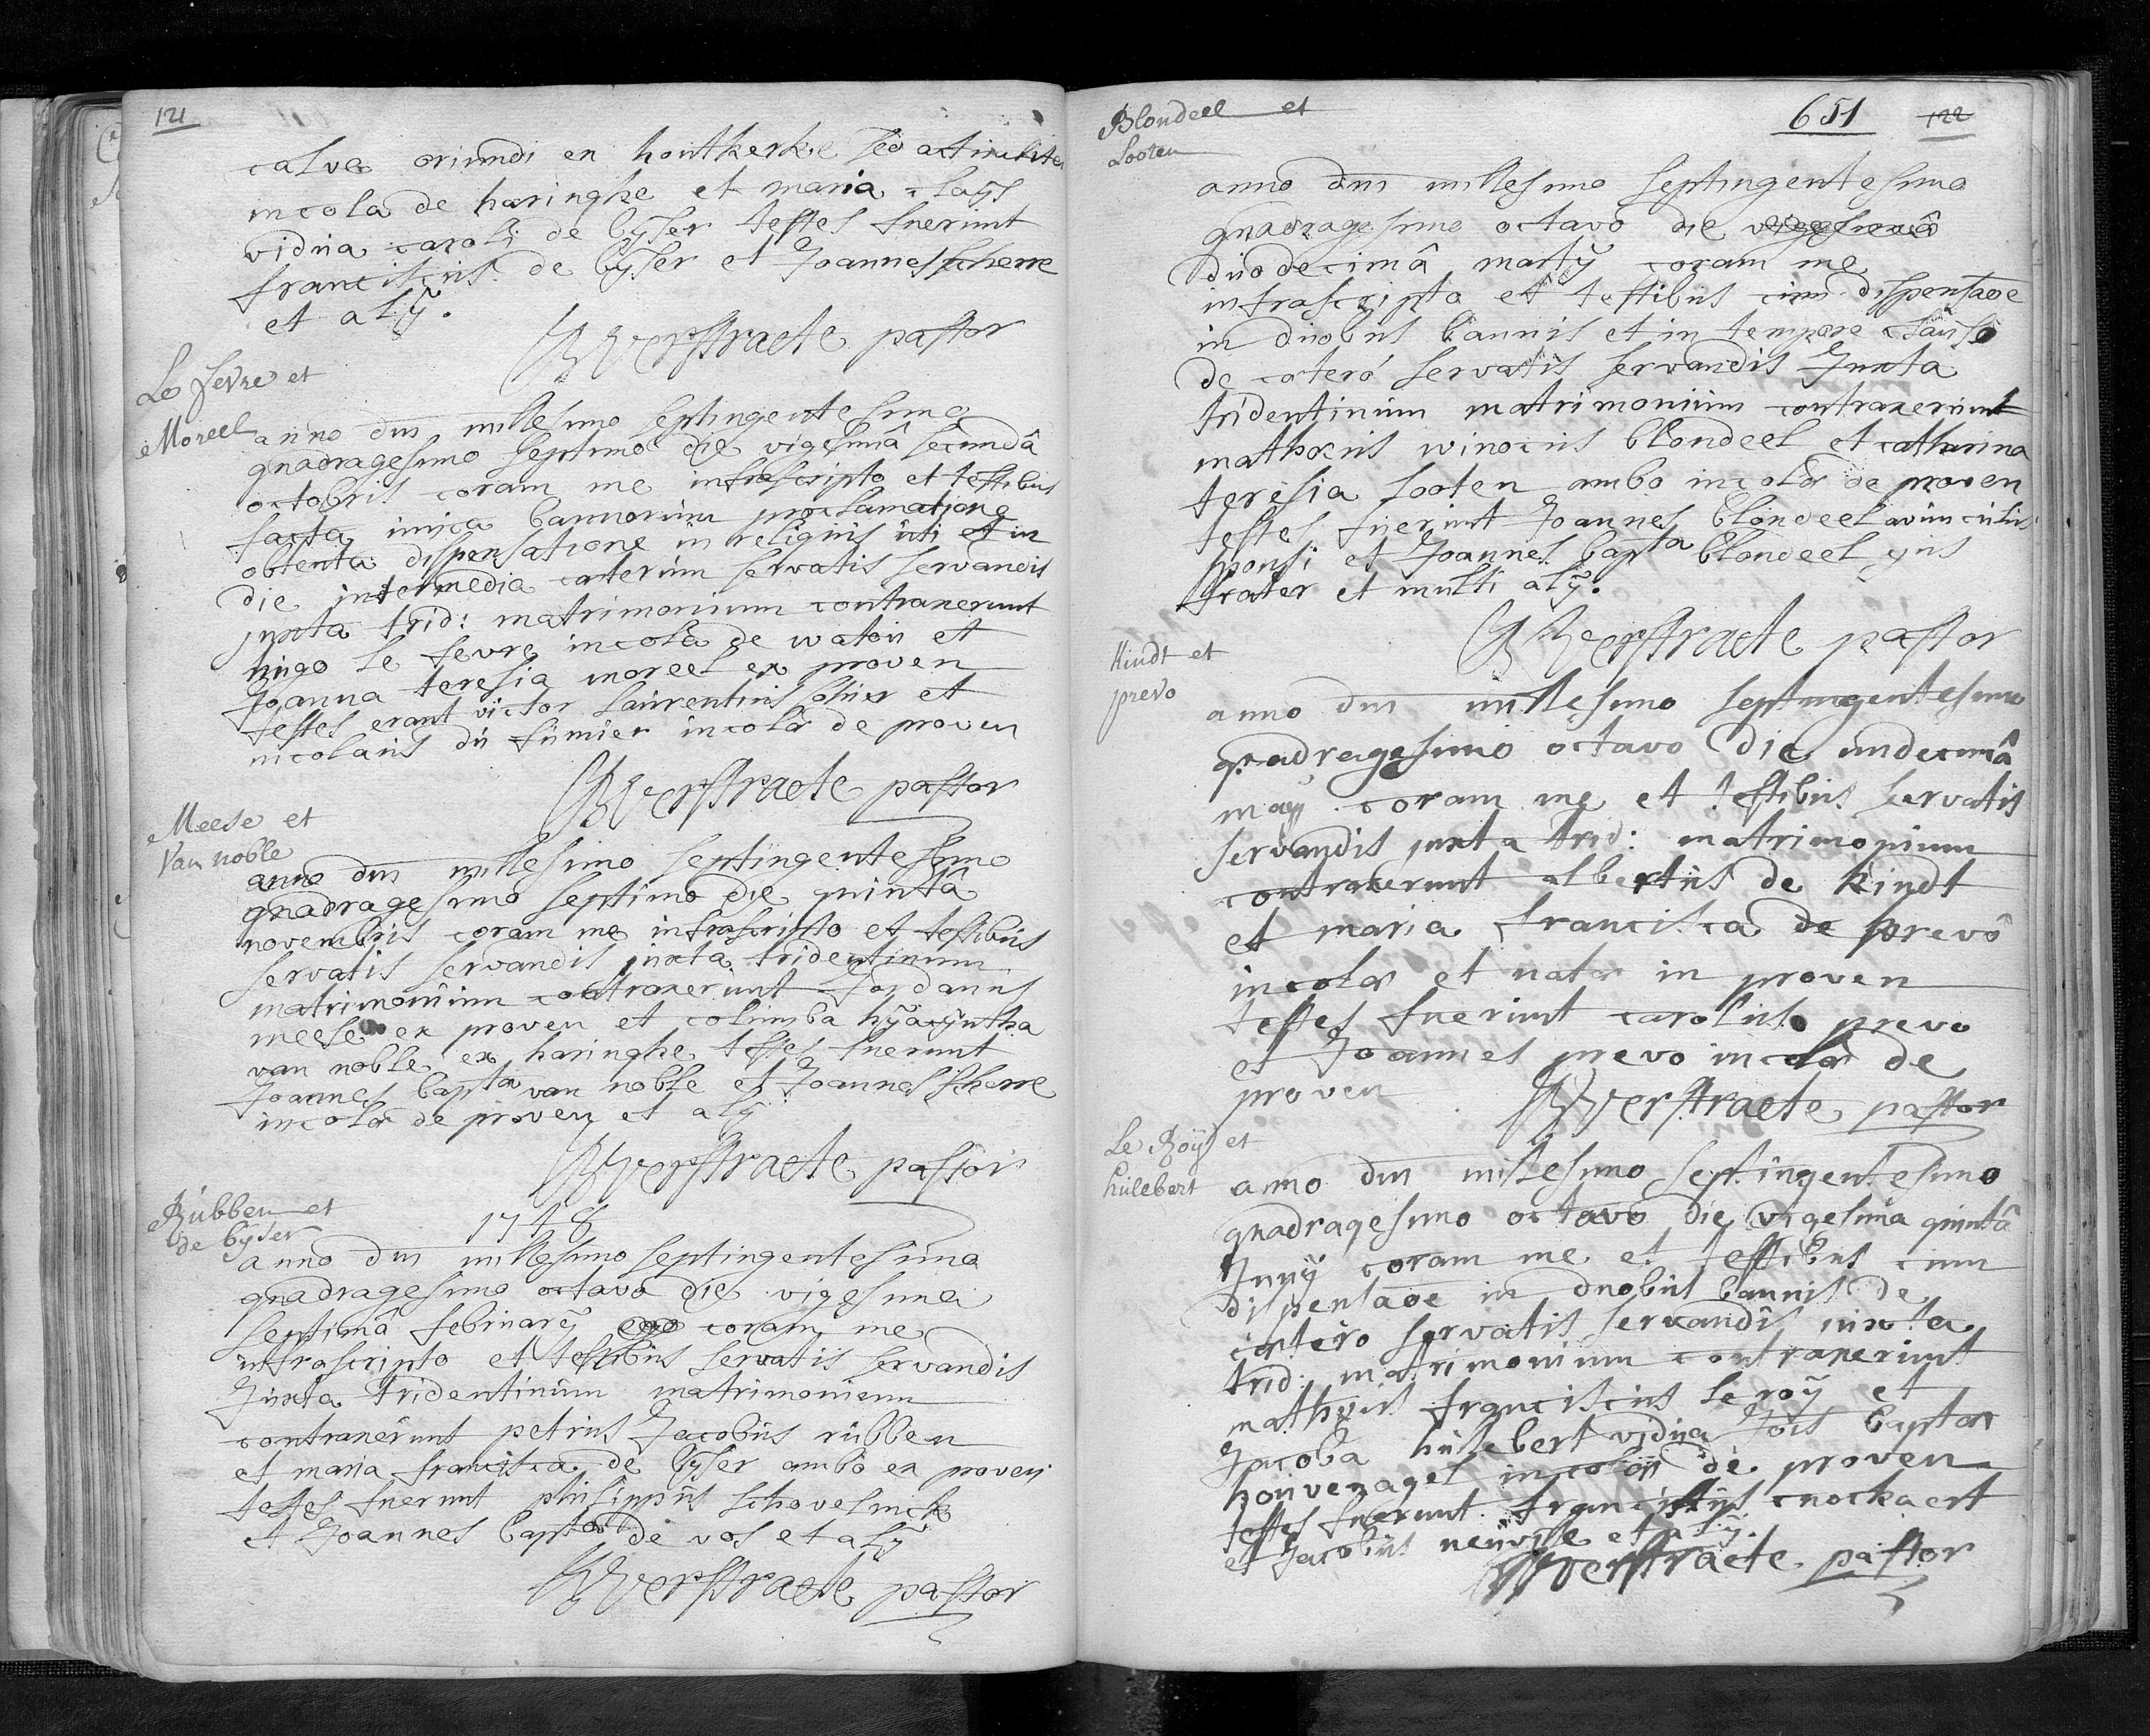 121
calve oriundi ex houtkerke sed actualiter
incola de haringhe et maria claÿs
vidua caroli de bÿser testes fuerunt
franciscus de bÿser et Joannes scherre
et alÿ.
JB verstraete pastor
Le fevre et
Moreel
anno dni millesimo septingentesimo
quadragesimo septimo die vigesimâ secundâ
octobris coram me infrascripto et testibus
facta unica bannorum proclamatione
obtenta dispensatione in reliquis uti et in
die intermedia cæterum servatis servandis
juxta trid: matrimonium contraxerunt
hugo le fevre incola de watou et
Joanna teresia moreel ex proven
testes erant victor laurentius
et
nicolaus du fumier incolæ de proven
JB verstraete pastor
Meese et
Van noble
anno dni millesimo septingentesimo
quadragesimo septimo die quintâ
novembris coram me infrascripto et testibus
servatis servandis juxta tridentinum
matrimonium contraxerunt Jordanus
meese ex proven et columba hÿacÿntha
van noble ex haringhe testes fuerunt
Joannes bapta van noble et Joannes scherre
incolæ de proven et alÿ
JB verstraete pastor
Rubben et
de bÿser
1748
anno dni millesimo septingentesimo
quadragesimo octavo die vigesima
septimâ februarÿ coram me
infrascripto et testibus servatis servandis
Juxta tridentinum matrimonium
contraxerunt petrus Jacobus rubben
et maria francisca de bÿser ambo ex proven
testes fuerunt philippus schovelinck
et Joannes bapta de vos et alÿ
JB verstraete pastor
651 122
Blondeel et
Looten
anno dni millesimo septingentesimo
quadragesimo octavo die vigesima
duodecimâ martÿ coram me
infrascripto et testibus cum dispensaoe
in duobus bannis et in tempore clauso
de cætero servatis servandis Juxta
tridentinum matrimonium contraxerunt
mathæus winocus blondeel et catharina
teresia looten ambo incolæ de proven
testes fuerunt Joannes blondeel avunculus
sponsi et Joannes bapta blondeel ejus
frater et multi alÿ.
JB verstraete pastor
Kindt et
prevo
anno dni millesimo septingentesimo
quadragesimo octavo die undecimâ
maÿ coram me et testibus servatis
servandis juxta trid: matrimonium
contraxerunt albertus de kindt
et maria francisca de prevô
incolæ et natæ in proven
testes fuerunt carolus prevo
et Joannes prevo incolæ de
proven
JB verstraete pastor
Le Roÿ et
hulebert
anno dni millesimo septingentesimo
quadragesimo octavo die vigesima quintâ
Junÿ coram me et testibus cum
dispensaoe in duobus bannis de
cætero servatis servandis juxta
trid: matrimonium contraxerunt
mathæus franciscus le roÿ et
Jacoba hullebert vidua Jois baptæ
houvenagel incolæ de proven
testes fuerunt franciscus cnockaert
et Jacobus neuville et alÿ.
JB verstraete pastor